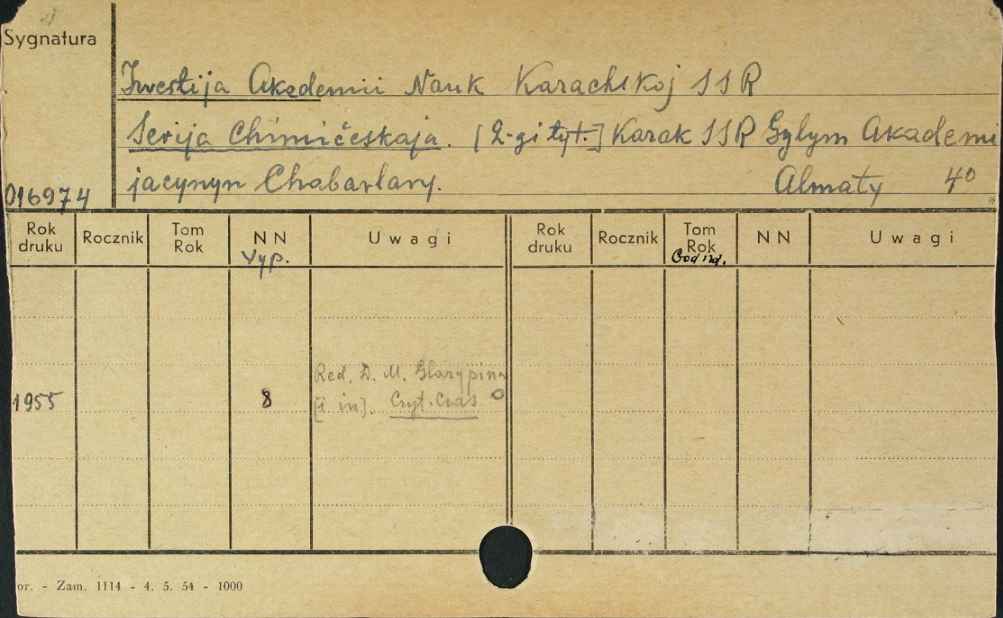 Sygnatura
Izvestija Akademii Nauk Karachskoj SSR
Serija Chimičeskaja. [2-gi tyt.] Karak SSR Gylym Akademi
jacynyn Chabarlary. Almaty 4°
016974
Rok druku Rocznik Tom Rok NN Uwagi Rok druku Rocznik Tom Rok NN Uwagi
Vyp. God izd.
1955 8 Red. D. M.
[i in]. Czyt. Czas
or. - Zam. 1114 - 4. 5. 54 - 1000